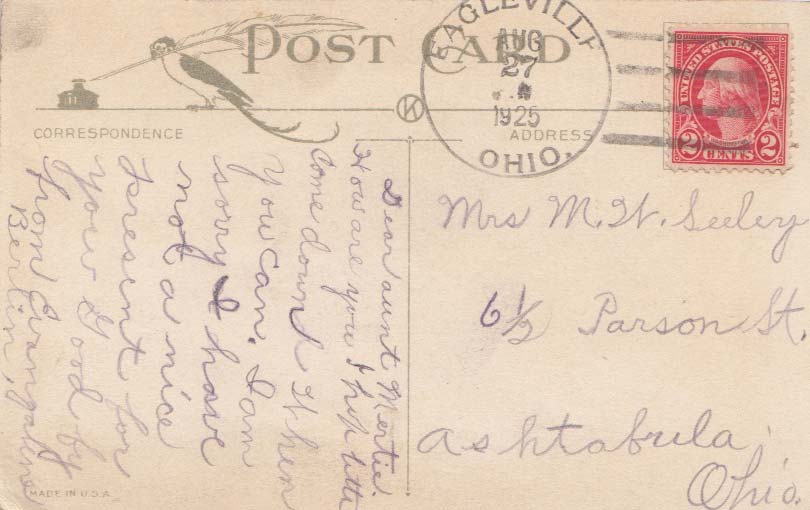 POST CARD
EAGLEVILLE
AUG
27
1925
OHIO.
UNITED STATES POSTAGE
2 CENTS 2
CORRESPONDENCE
ADDRESS
Dear aunt Mertie.
How are you I hop
Come down when
You can. I am
sorry I have
not a nice
Present for
you Good by
from Evangalene
Berlin,
Mrs M. W. Seeley
6 1/2 Parson St.
Ashtabula,
Ohio.
MADE IN U.S.A.